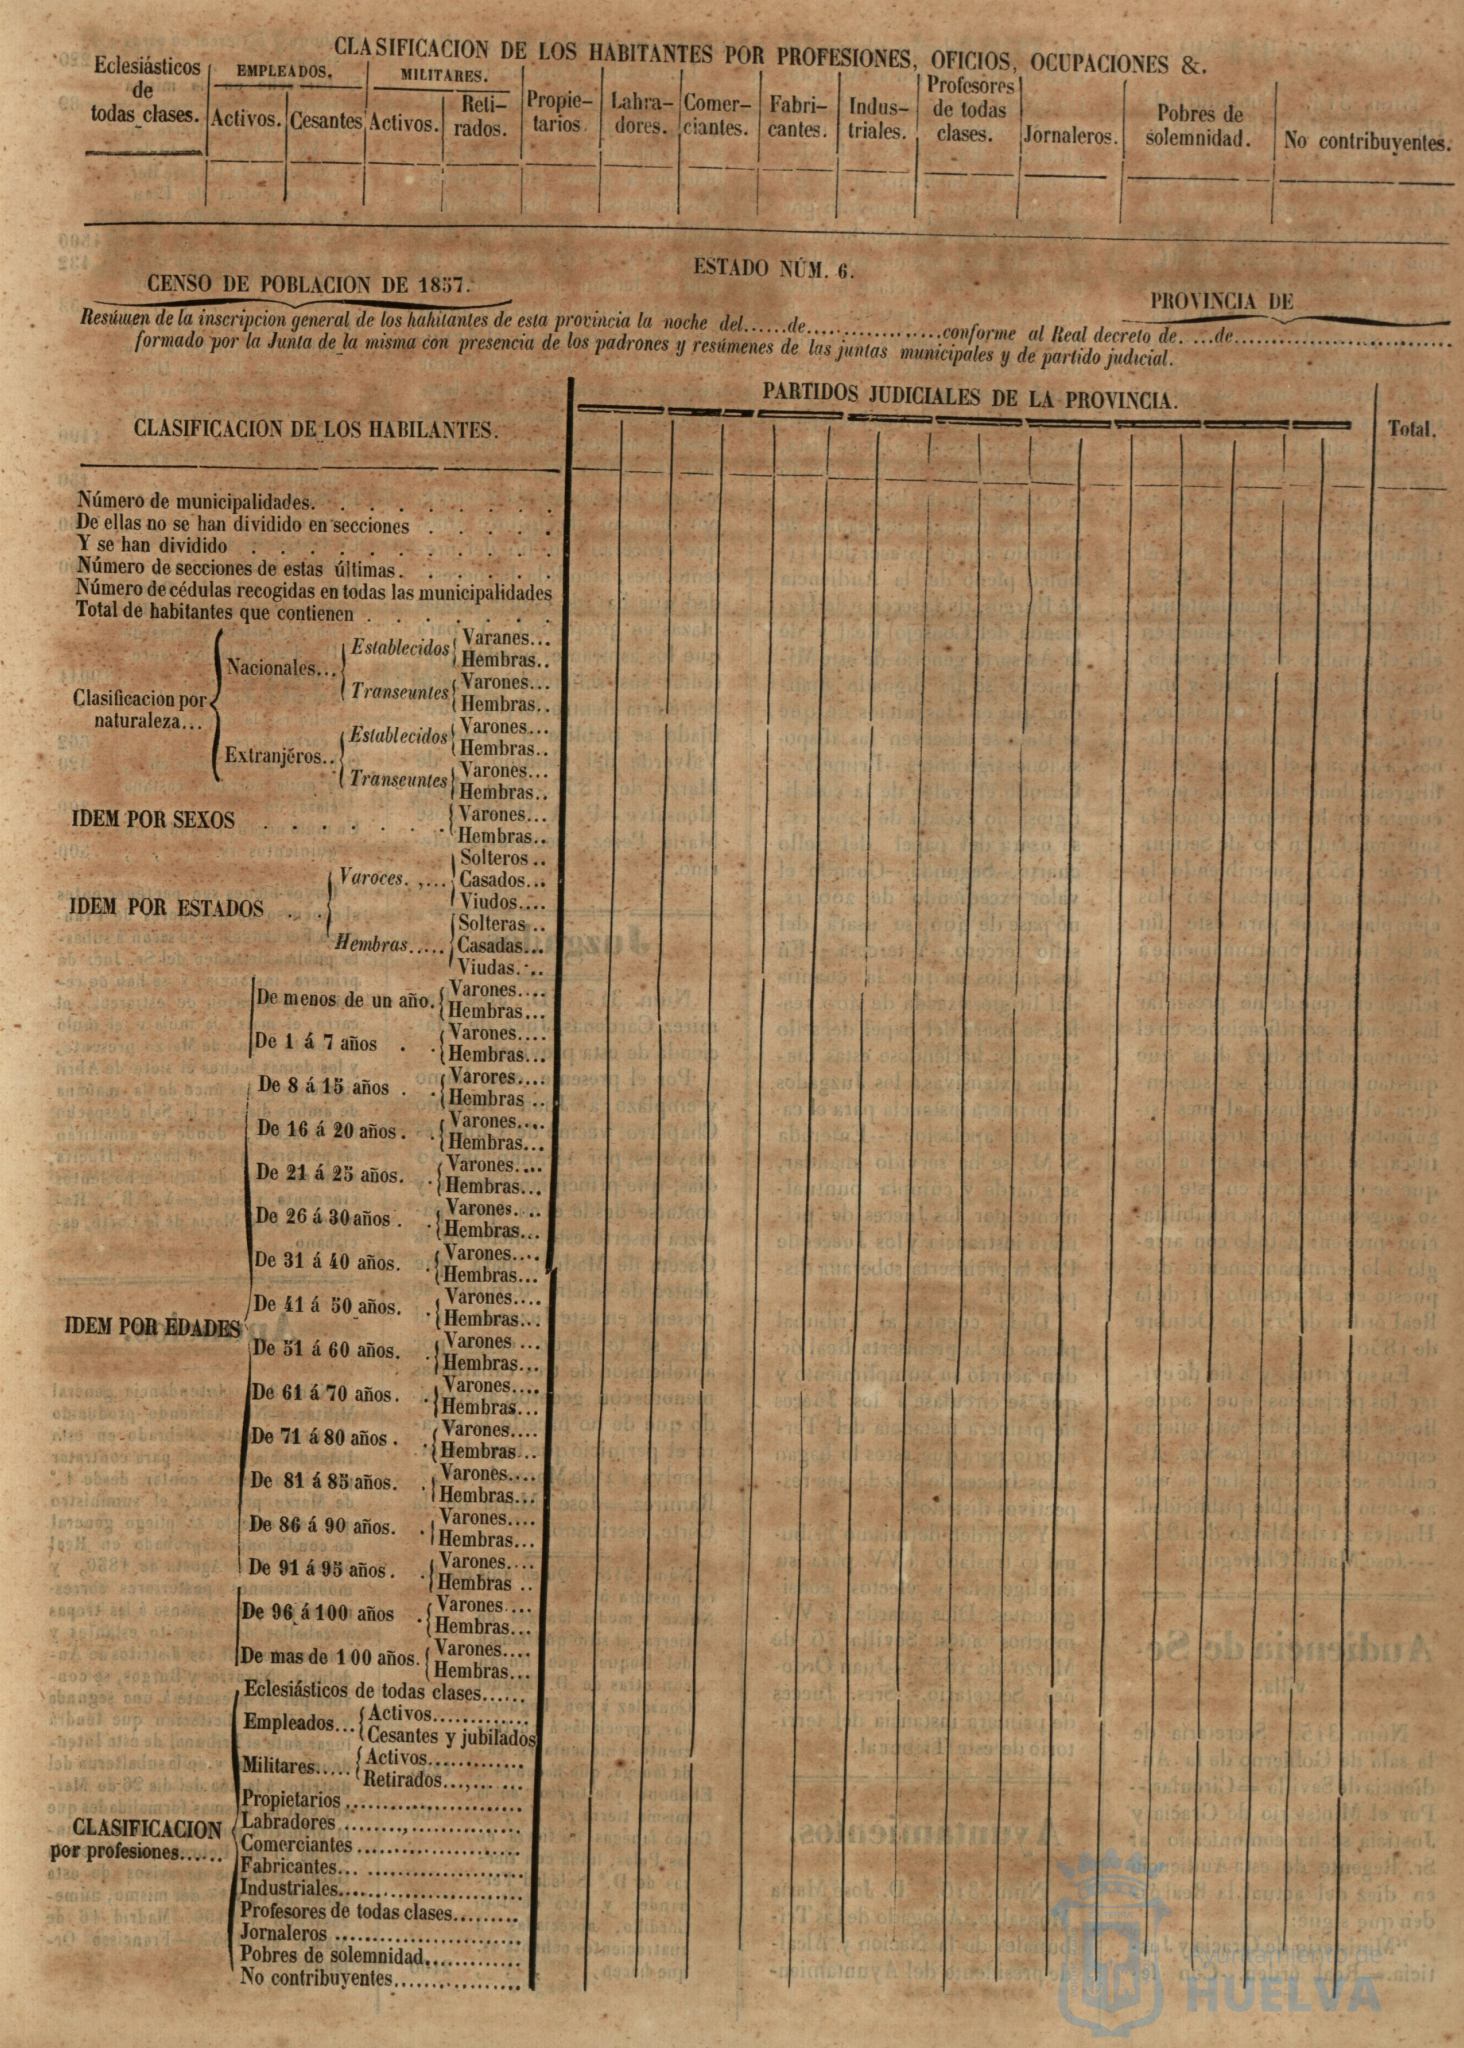 CLASIFICACION DE LOS HABITANTES POR PROFESIONES, OFICIOS, OCUPACIONES &.
Eclesiásticos de todas clases.
EMPLEADOS.
Activos.
Cesantes
MILITARES.
Activos.
Reti-
rados.
Propie-
tarios.
Lahra-
dores.
Comer-
ciantes.
Fabri-
cantes.
Indus-
triales.
Profesores
de todas
clases.
Jornaleros.
Pobres de
solemnidad.
No contribuyentes.
ESTADO NÚM. 6.
CENSO DE POBLACION DE 1857.
PROVINCIA DE
Resúmen de la inscripcion general de los hahitantes de esta provincia la noche del......de...................conforme al Real decreto de. ...de............................
formado por la Junta de la misma con presencia de los padrones y resúmenes de las juntas municipales y de partido judicial.
CLASIFICACION DE LOS HABILANTES.
PARTIDOS JUDICIALES DE LA PROVINCIA.
Total.
Número de municipalidades. . . . . . . . .
De ellas no se han dividido en secciones . . . . .
Y se han dividido . . . . . . . . . . .
Número de secciones de estas últimas. . . . . .
Número de cédulas recogidas en todas las municipalidades
Total de habitantes que contienen . . . . . . .
Clasificacion por
naturaleza...
Nacionales...
Establecidos
Varanes...
Hembras..
Transeuntes
Varones...
Hembras..
Extranjéros..
Establecidos
Varones...
Hembras..
Transeuntes
Varones...
Hembras..
IDEM POR SEXOS . . . . . . .
Varones...
Hembras..
IDEM POR ESTADOS . .
Varoces. ,...
Solteros ..
Casados...
Viudos....
Hembras.....
Solteras ..
Casadas...
Viudas. ..
IDEM POR EDADES
De menos de un año.
Varones....
Hembras...
De 1 á 7 años . .
Varones....
Hembras...
De 8 á 15 años . .
Varores....
Hembras ..
De 16 á 20 años. .
Varones....
Hembras...
De 21 á 25 años. .
Varones....
Hembras...
De 26 á 30 años . .
Varones....
Hembras...
De 31 á 40 años. .
Varones....
Hembras...
De 41 á 50 años. .
Varones....
Hembras...
De 51 á 60 años. .
Varones....
Hembras...
De 61 á 70 años. .
Varones....
Hembras...
De 71 á 80 años . .
Varones....
Hembras...
De 81 á 85 años. .
Varones....
Hembras...
De 86 á 90 años. .
Varones....
Hembras...
De 91 á 95 años. .
Varones....
Hembras ..
De 96 á 100 años .
Varones....
Hembras...
De mas de 100 años.
Varones....
Hembras...
CLASIFICACION
por profesiones......
Eclesiásticos de todas clases......
Empleados...
Activos.............
Cesantes y jubilados
Militares.....
Activos............
Retirados...,... ...
Propietarios ........................
Labradores ........,...............
Comerciantes ......................
Fabricantes... .....................
Industriales.........................
Profesores de todas clases.........
Jornaleros .........................
Pobres de solemnidad.............
No contribuyentes..................
Ayuntamiento de
HUELVA